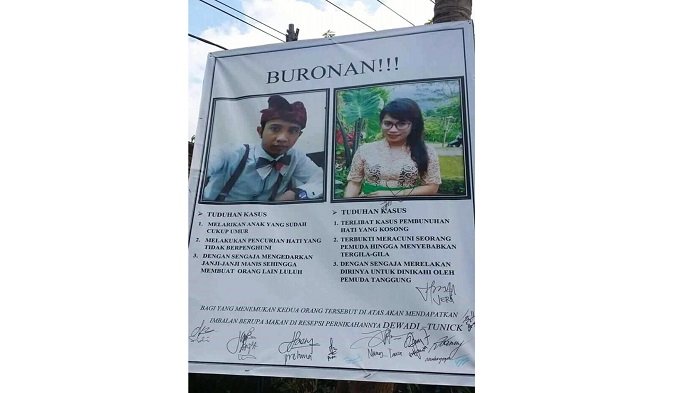 BURONAN!!!
➢ TUDUHAN KASUS
1. MELARIKAN ANAK YANG SUDAH
CUKUP UMUR
2. MELAKUKAN PENCURIAN HATI YANG
TIDAK BERPENGHUNI
3. DENGAN SENGAJA MENGEDARKAN
JANJI-JANJI MANIS SEHINGGA
MEMBUAT ORANG LAIN LULUH
➢ TUDUHAN KASUS
1. TERLIBAT KASUS PEMBUNUHAN
HATI YANG KOSONG
2. TERBUKTI MERACUNI SEORANG
PEMUDA HINGGA MENYEBABKAN
TERGILA-GILA
3. DENGAN SENGAJA MERELAKAN
DIRINYA UNTUK DINIKAHI OLEH
PEMUDA TANGGUNG
BAGI YANG MENEMUKAN KEDUA ORANG TERSEBUT DI ATAS AKAN MENDAPATKAN
IMBALAN BERUPA MAKAN DI RESEPSI PERNIKAHANNYA DEWADI - TUNICK